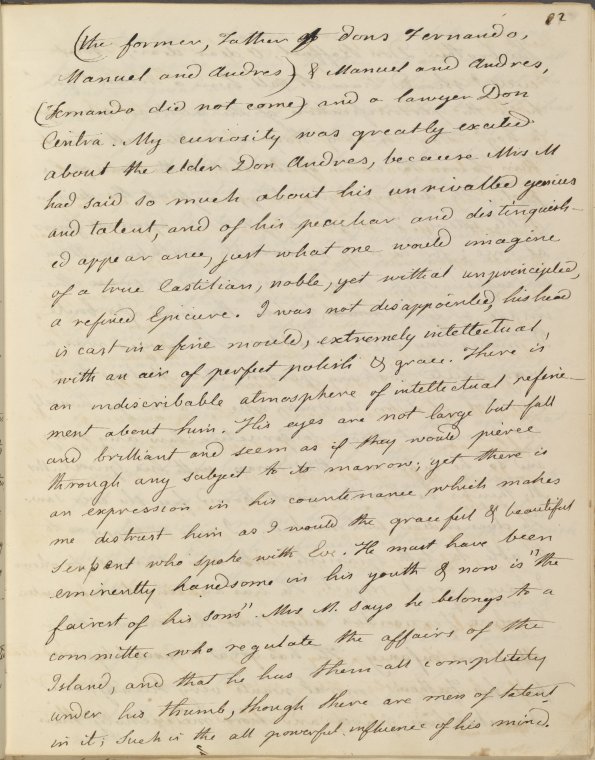 82
(the former, Father of dons Fernando,
Manuel and Andres) & Manuel and Andres,
(Fernando did not come) and a lawyer Don
Cintra. My curiosity was greatly excited
about the elder Don Andres, because Mrs M
had said so much about his unrivalled genius
and talent, and of his peculiar and distinguish-
ed appearance, just what one would imagine
of a true Castilian, noble, yet withal unprincipled,
a refined Epicure. I was not disappointed, his head
is cast in a fine mould, extremely intellectual,
with an air of perfect polish & grace. There is
an indiscribable atmosphere of intellectual refine-
ment about him. His eyes are not large but full
and brilliant and seem as if they would pierce
through any subject to its marrow; yet there is
an expression in his countenance which makes
me distrust him as I would the graceful & beautiful
serpent who spoke with Eve. He must have been
eminently handsome in his youth & now is "the
fairest of his sons". Mrs M. says he belongs to a
committee who regulate the affairs of the
Island, and that he has them all completely
under his thumb, though there are men of talent
in it; such is the all powerful influence of his mind.